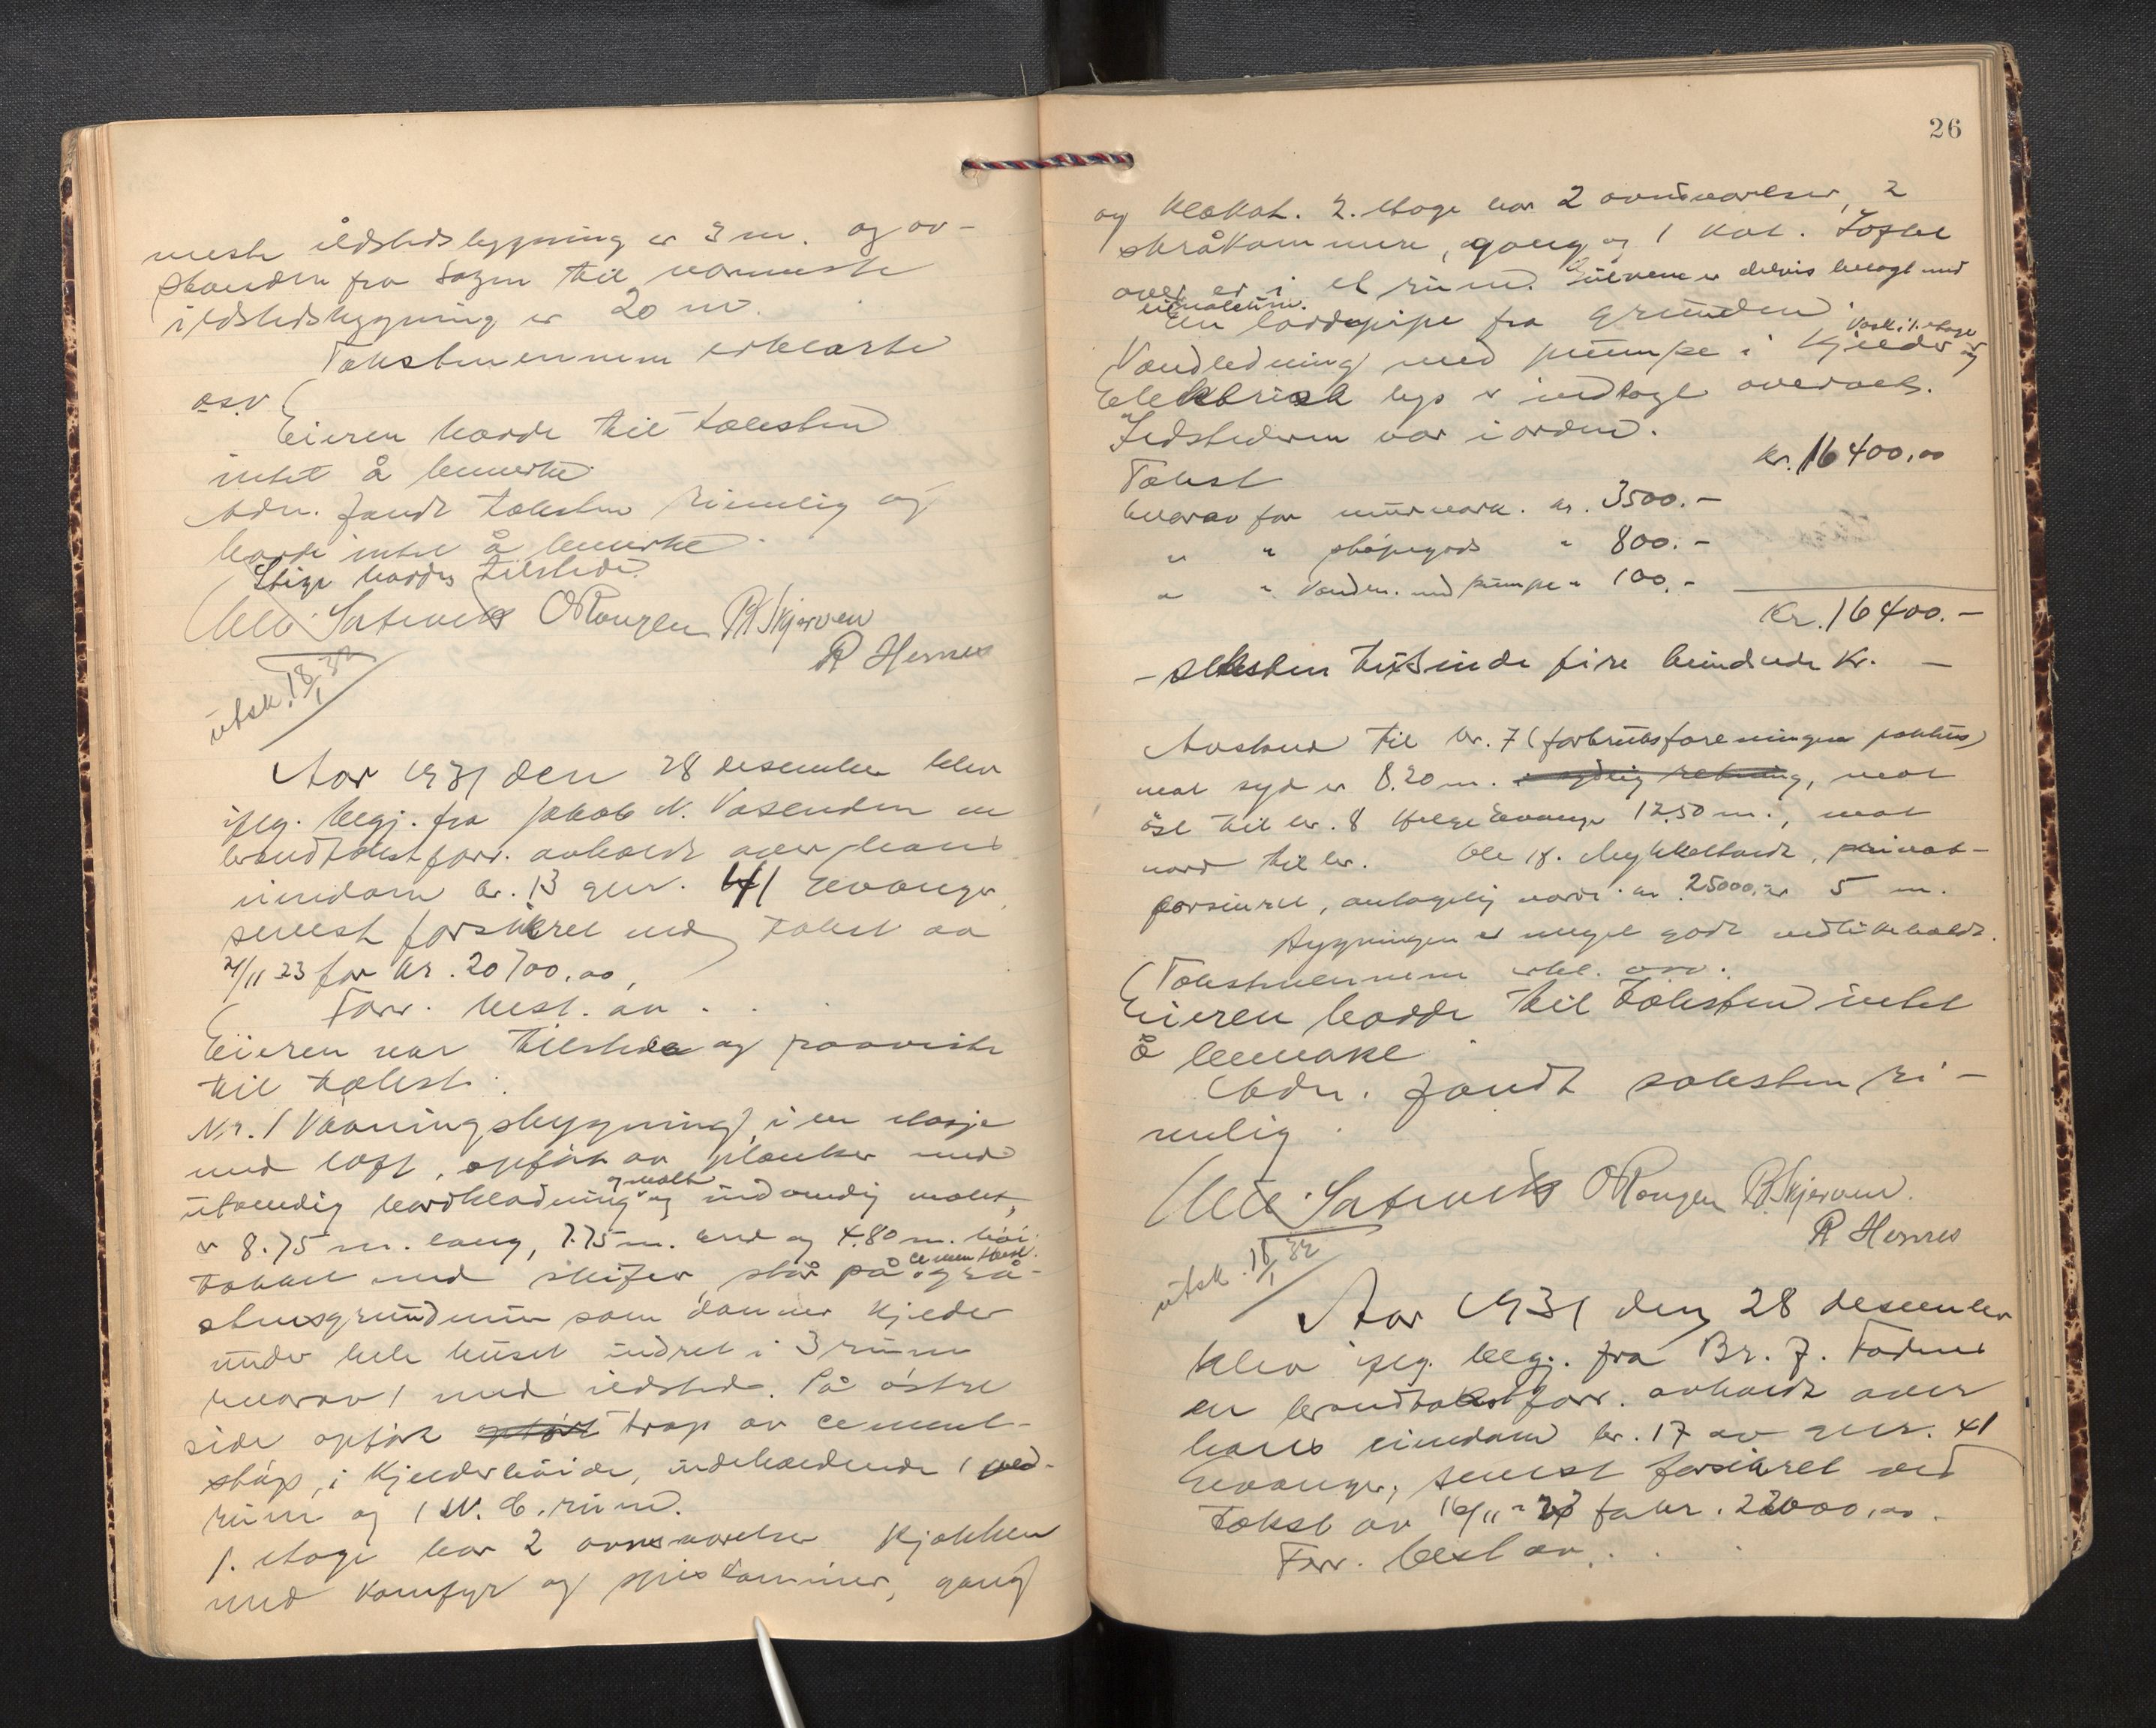 meste ildstedsbygning er 3 m. og av-
standen fra Sagen til nærmeste
ildstedsbygning er 20 m.
Takstmennene erklærte
osv.
Eieren hadde til taksten
intet å bemerke.
Adm. fandt taksten rimelig og
hadde intet å bemerke.
Stige havdes tilstede.
O Rongen R Skjerven
R Hernes
utsk. 18/1 32
Aar 1931 den 28 desember blev
iflg. begj. fra Jakob N. Vasenden en
brandtakstforr. avholdt over hans
eiendom br. 13 gnr. 41 Evanger,
senest forsikret ved takst av
2/11 23 for kr. 20700,00
Forr. best. av . .
Eieren var tilstede og paaviste
til takst:
Nr. 1 Vaaningsbygning, i en etasje
med loft, opført av planker med
og malt
utvendig bordklædning og indvendig malt,
er 8.75 m. lang, 7.75 m. bred og 4.80 m. høi.
cementstøpt
Takket med skifer, står på grå-
stensgrundmur som danner kjelder
under hele huset indret i 3 rum
hvorav 1 med ildsted. På østre
side opført opført trap av cement-
støp, i kjelderhøide, indeholdende 1 ved-
rum og 1 W. C. rum.
1. etage har 2 ovnsværelser kjøkken
med komfyr og spiskammer, gang
26
og klækot. 2. etage har 2 ovnsværelser, 2
skråkammere, gang og 1 kot. Loftet
over er i et rum. Gulvene er delvis belagt med
linoleum.
En loddepipe fra grunden.
vask i 1. etage
Vandledning med pumpe i kjelder og
Elektrisk lys er indlagt overalt.
Ildstederne var i orden.
Takst kr. 16400,00
hvorav for murverk. kr. 3500.-
" " støpegods " 800.-
" " Vandl. med pumpe " 100.-
Kr. 16400.-
- seksten tusinde fire hundrede kr. -
Avstand til br. 7 (forbruksforeningens pakhus)
mot syd er 8.20 m. i sydlig retning, mot
øst til br. 8 Helge Evanger 12.50 m., mot
nord til br. Ole K. Mykkeltvedt, privat-
forsikret, antagelig værdi kr. 25000, er 5 m.
Bygningen er meget godt vedlikeholdt.
Takstmennene erkl. osv.
Eieren hadde til taksten intet
å bemerke
Adm. fandt taksten ri-
melig.
O Rongen R. Skjerven.
R Hernes
utsk. 18/1 32
Aar 1931 den 28 desember
blev iflg. begj. fra Br. J. Fadnes
en brandtakstforr. avholdt over
hans eiendom br. 17 av gnr. 41
Evanger, senest forsikret ved
takst av 16/11 - 23 for kr. 22000,00.
Forr. best av. . .